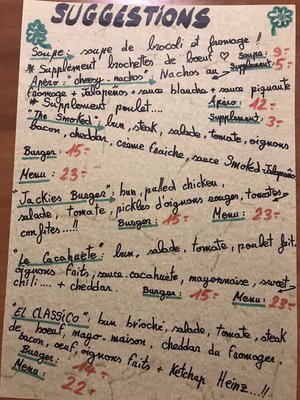 SUGGESTIONS
Soupe: soupe de brocoli et fromage !!
* Supplement brochettes de bœuf ♡ Soupe: 9.-
Supplement: 5.-
Apéro: cheesy-nachos: Nachos au
fromage + Jalapeños + sauce blanche + sauce piquante
* Supplement poulet.... Apéro: 12.-
Supplement: 3.-
"The Smoked": bun, steak, salade, tomate, oignons
bacon, cheddar, creme fraiche, sauce Smoked Jalapeños
Burger: 15.-
Menu: 23.-
"Jackies Burger": bun, pulled chicken,
salade, Tomate, pickles d'oignons rouges, tomates
confites....!! Burger: 15.- Menu: 23.-
"Le Cacahuète": bun, salade, tomate, poulet frit,
oignons frits, sauce cacahuète, mayonnaise, sweet
chili..... + cheddar. Burger: 15.- Menu: 23.-
"EL CLASSiCO": bun brioche, salade, tomate, steak
de boeuf, mayo-maison, cheddar du fromager,
bacon, oeuf, oignons frits + Ketchup Heinz...!!
Burger: 14.-
Menu: 22.-